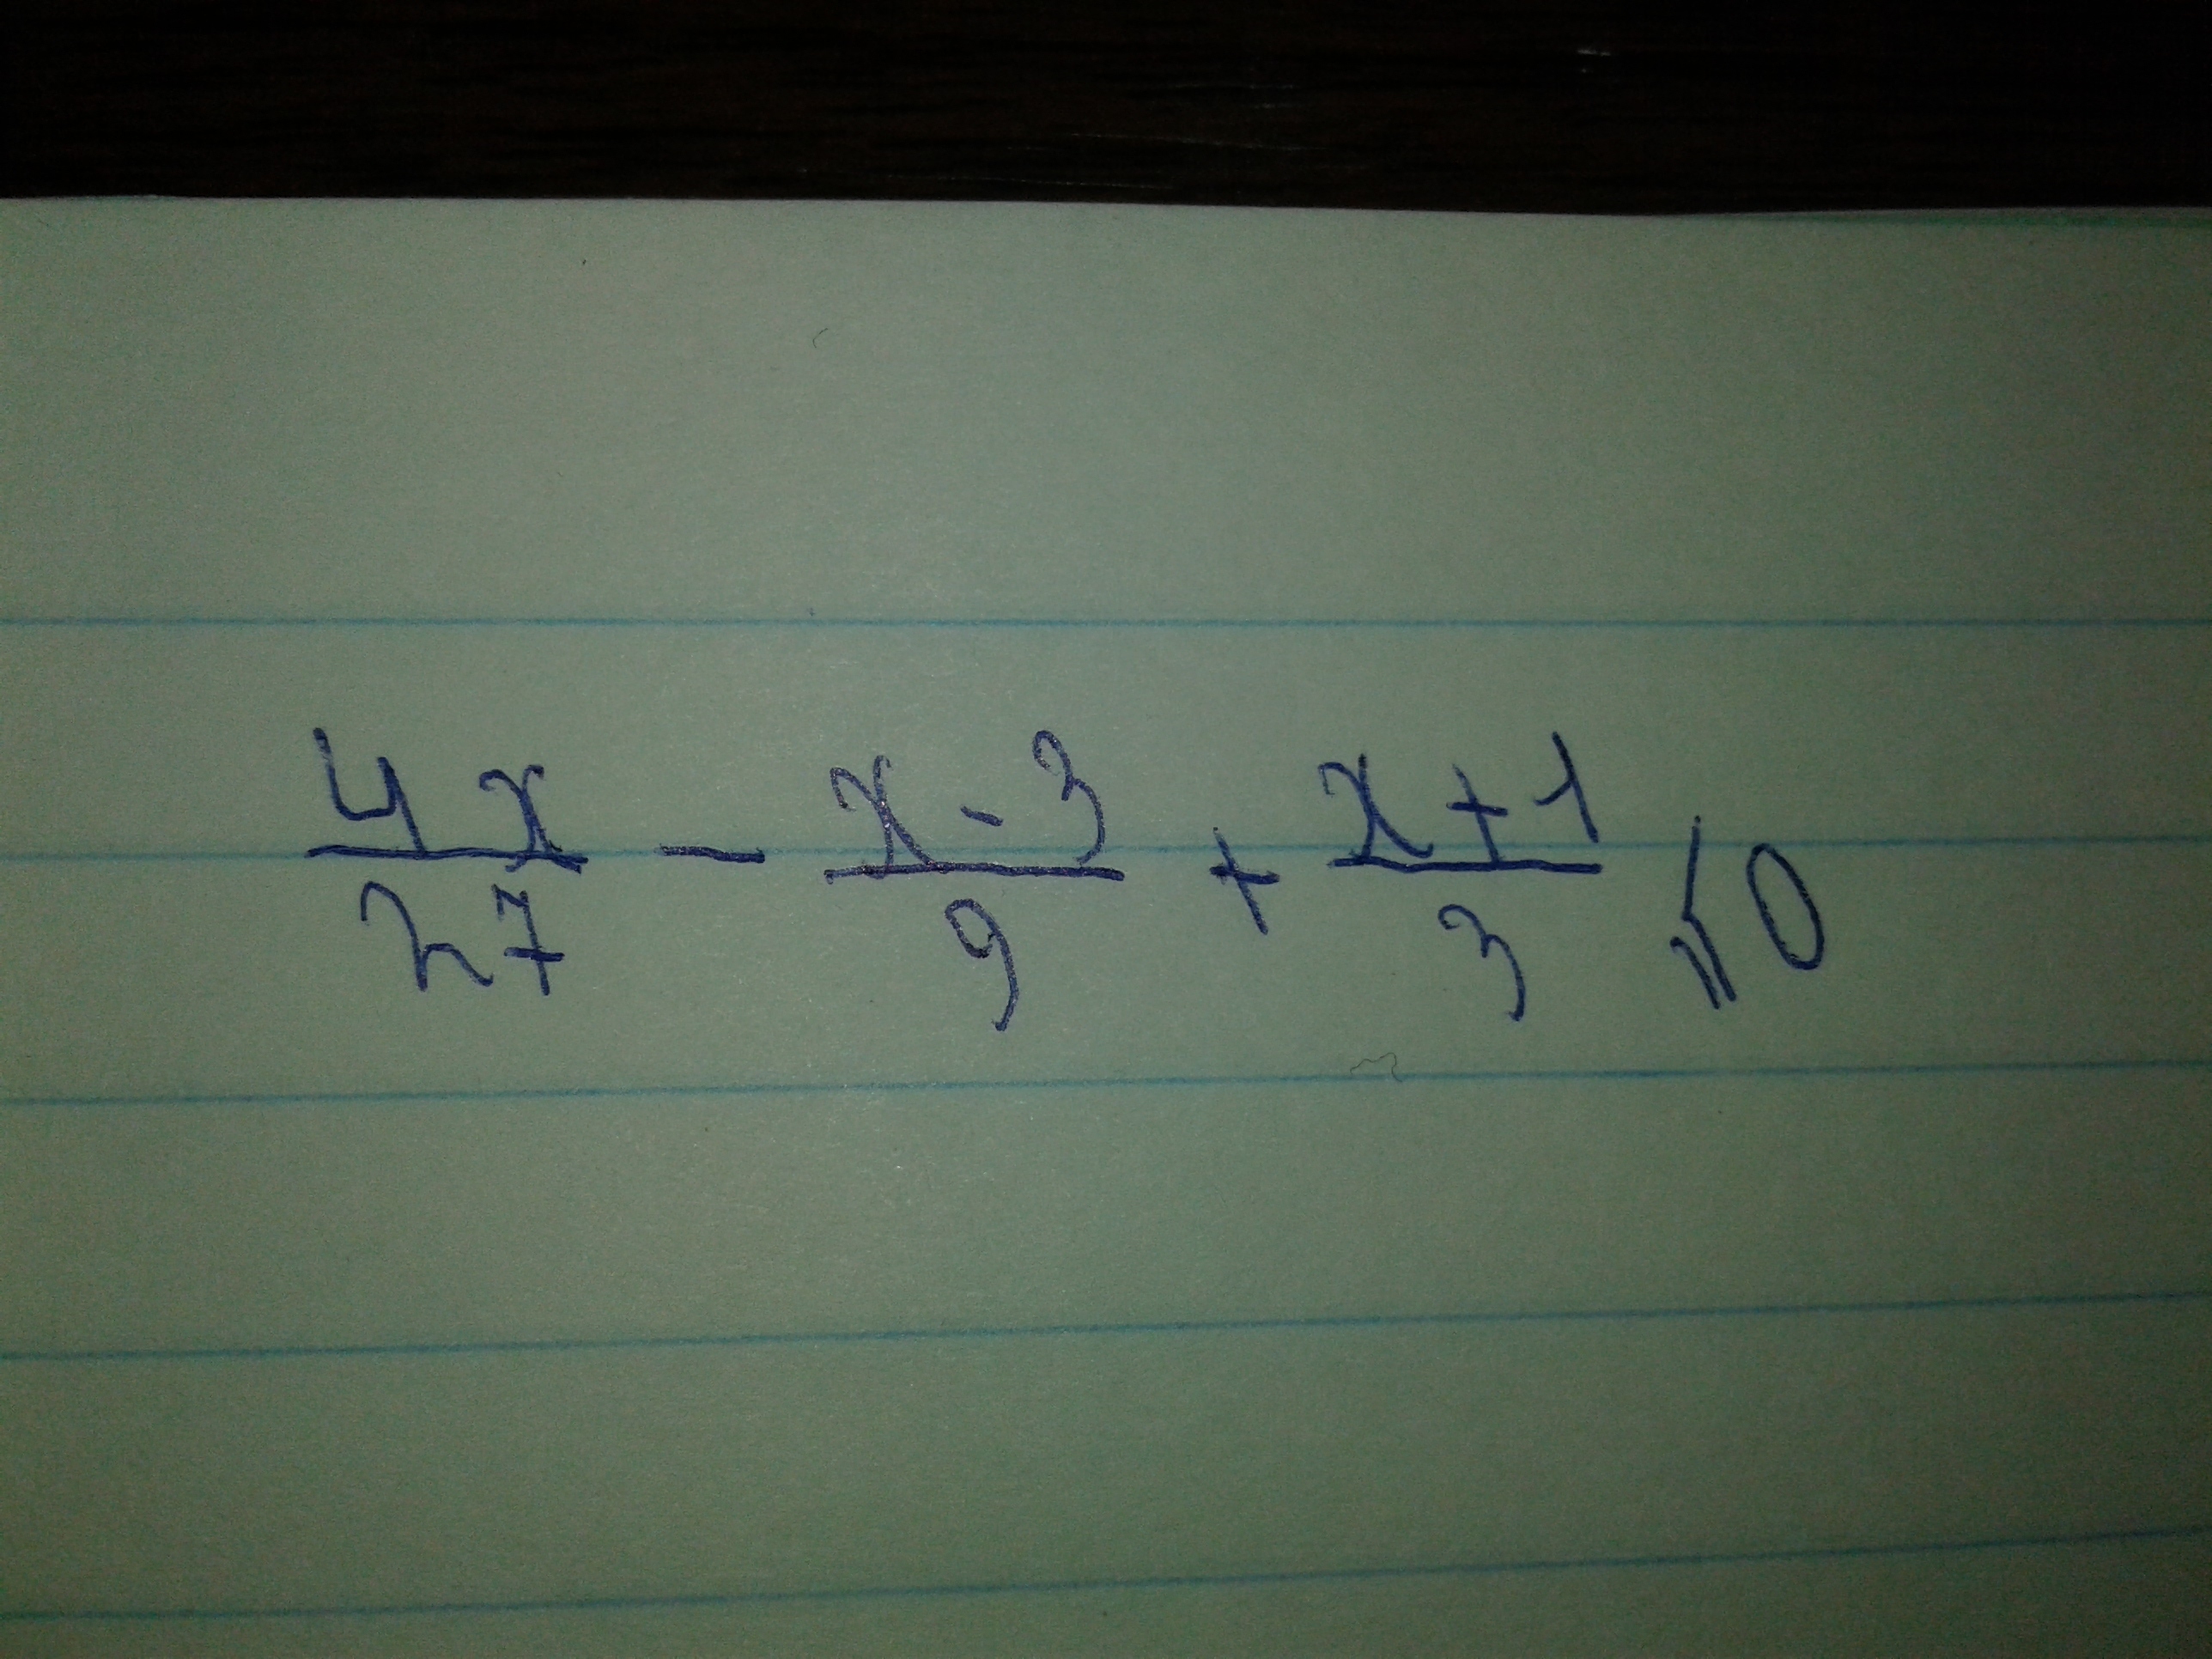 4x/27 - x-3/9 + x+1/3 ⩽ 0